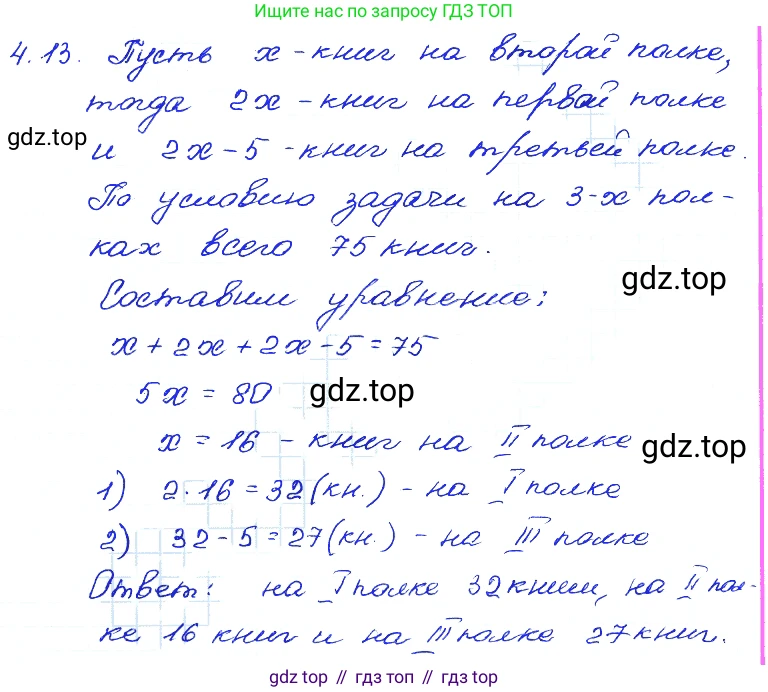 Ищите нас по запросу ГДЗ ТОП
4.13. Пусть x - книг на второй полке,
тогда 2x - книг на первой полке
gdz.top
и 2x - 5 - книг на третьей полке.
По условию задачи на 3-х пол-
ках всего 75 книг.
gdz.top
Составим уравнение:
x + 2x + 2x - 5 = 75
5x = 80
gdz.top
x = 16 - книг на II полке
gdz.top
1) 2·16 = 32 (кн.) - на I полке
2) 32 - 5 = 27 (кн.) - на III полке
Ответ: на I полке 32 книги, на II пол-
ке 16 книг и на III полке 27 книг.
gdz top // гдз топ // gdz top